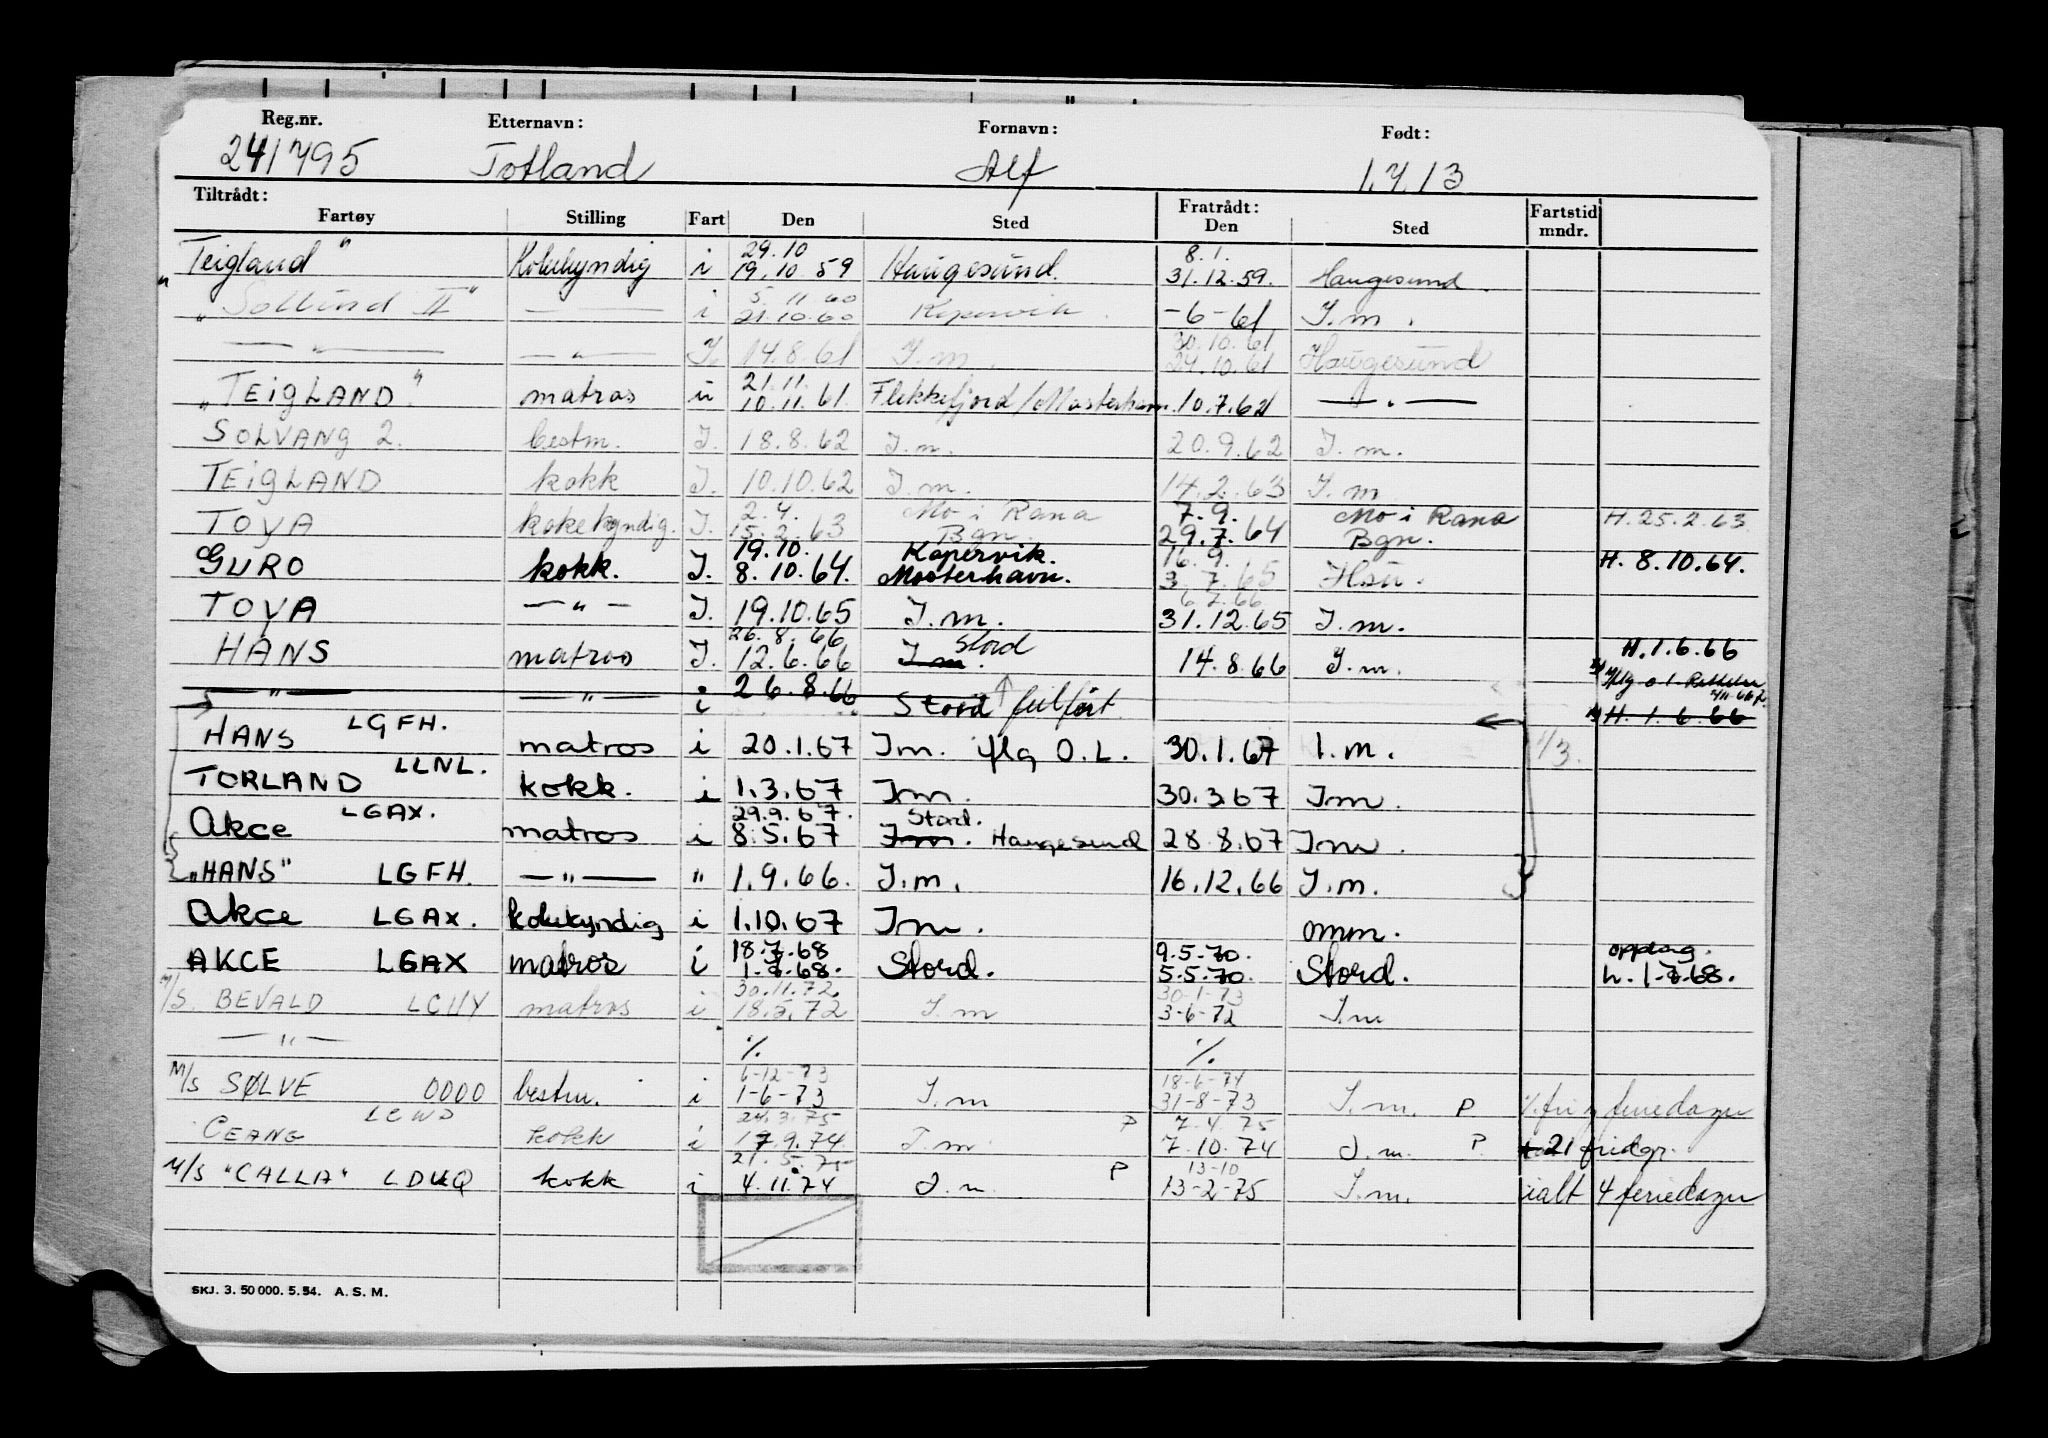 Reg.nr. Etternavn: Fornavn: Født:
241795 Totland Alf 1.7.13
Tiltrådt: Fratrådt:
Fartøy Stilling Fart Den Sted Den Sted Fartstid mndr.
29.10 8.1.
"Teigland" Kokekyndig i 19.10.59 Haugesund. 31.12.59. Haugesund.
5.11.60
"Sollund II" — i 21.10.60 Kopervik. -6-61 I.m.
30.10.61
— " — — " — I. 14.8.61 I.m. 24.10.61 Haugesund
21.11.
"TEIGLAND" matros u 10.11.61. Flekkefjord/Mosterhavn 10.7.62 — " —
SOLVANG 2. bestm. I. 18.8.62 I.m. 20.9.62 I.m.
TEIGLAND kokk I. 10.10.62 I.m. 14.2.63 I.m.
2.4. Mo i Rana 7.9. Mo i Rana
TOVA kokekyndig. I. 15.2.63 Bgn. 29.7.64 Bgn. H.25.2.63
19.10. Kopervik. 16.9.
GURO kokk. I. 8.10.64. Mosterhavn. 3.7.65 Hsu. H. 8.10.64.
6.7.66
TOVA — " — I. 19.10.65 I.m. 31.12.65 I.m.
26.8.66 Stord H.1.6.66
HANS matros I. 12.6.66 I.m. 14.8.66 I.m.
— " — — " — i 26.8.66 Stord feilført H. 1.6.66
HANS LGFH. matros i 20.1.67 Im. iflg O.L. 30.1.67 I.m. 1/3.
TORLAND LLNL. kokk. i 1.3.67 Im. 30.3.67 Im.
29.9.67. Stord.
Akce LGAX. matros i 8.5.67 Im. Haugesund 28.8.67 Im.
"HANS" LGFH. — " — " 1.9.66. I.m. 16.12.66 I.m.
Akce LGAX. kokekyndig i 1.10.67 Im. omm.
18.7.68 9.5.70. oppdag.
AKCE LGAX matros i 1.7.68. Stord. 5.5.70. Stord. h. 1-7-68.
30.11.72. 30-1-73
M/S. BEVALD matros i 18.5.72 I.m 3-6-72 I.m
— " — % %
6-12-73 18-6-74
M/S SØLVE 0000 bestm. i 1-6-73 I.m 31-8-73 I.m. P %fri feriedager
24.3.75 P 7.4.75
kokk i 17.9.74 I.m 7.10.74 I.m. P 21 fridgr.
21.5.75 P 13-10
M/S "CALLA" LDUQ kokk i 4.11.74 I.m 13-2-75 I.m. ialt 4 feriedager
SKJ. 3. 50 000. 5. 54. A. S. M.